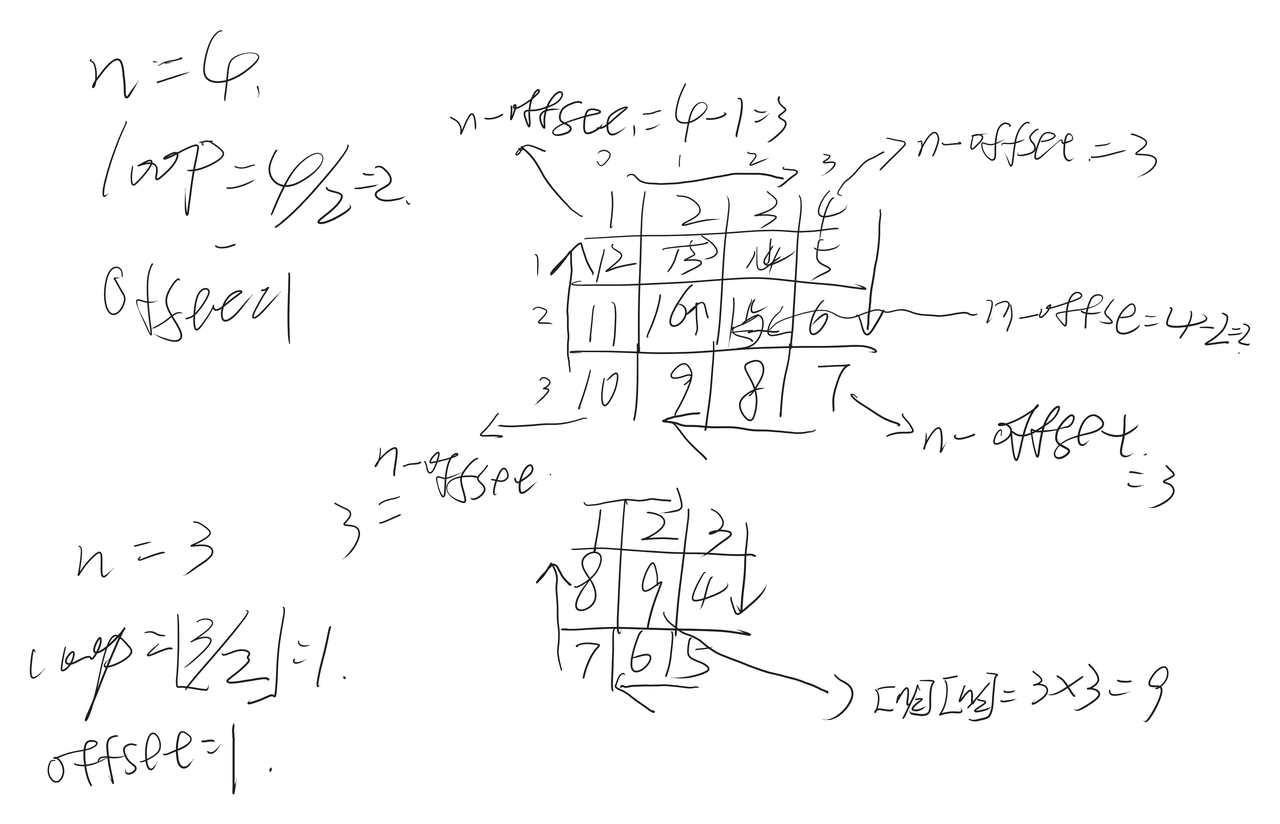 n=4.
loop=4/2=2.
offset=1
n-offset=4-1=3
n-offset=3
0 1 2 3
1 2 3 4
1 12 13 14 5
2 11 16 15 6
n-offse=4-2=2
3 10 9 8 7
n-offset
=3
n-offset.
3=
n=3
loop=⌊3/2⌋=1.
offset=1.
1 2 3
8 9 4
7 6 5
[n/2][n/2]=3×3=9